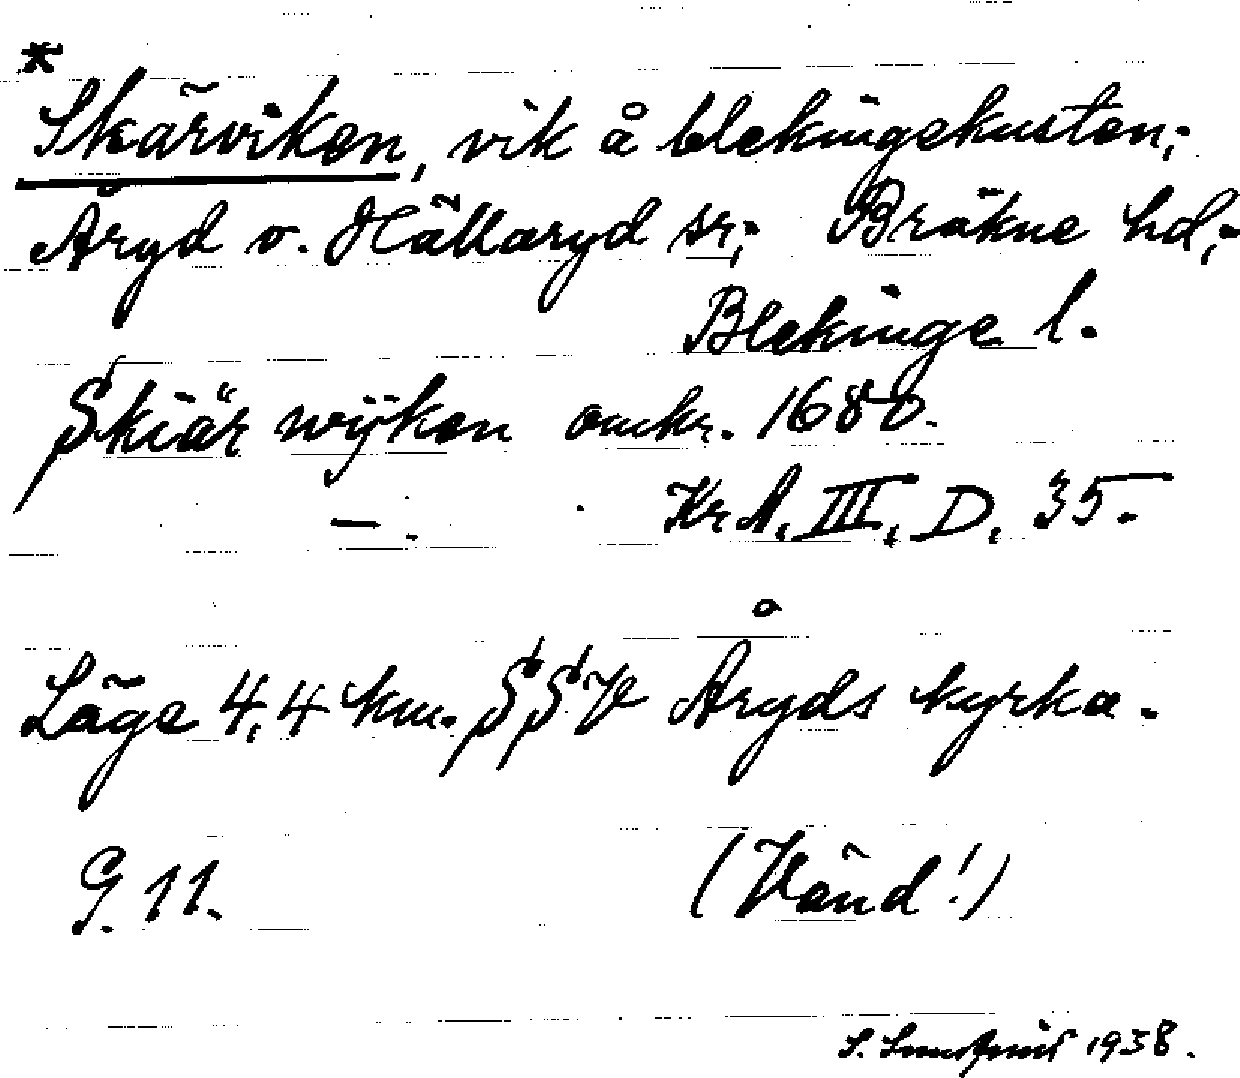 *
Skärviken, vik å blekingekusten;
Åryd o. Hällaryd sr; Bräkne hd;
Blekinge l.
Skiär wÿken omkr. 1680.
Kr A. III, D. 35.
Läge 4,4 km. SSV Åryds kyrka.
G. 11.
(Vänd!)
S. 1938.